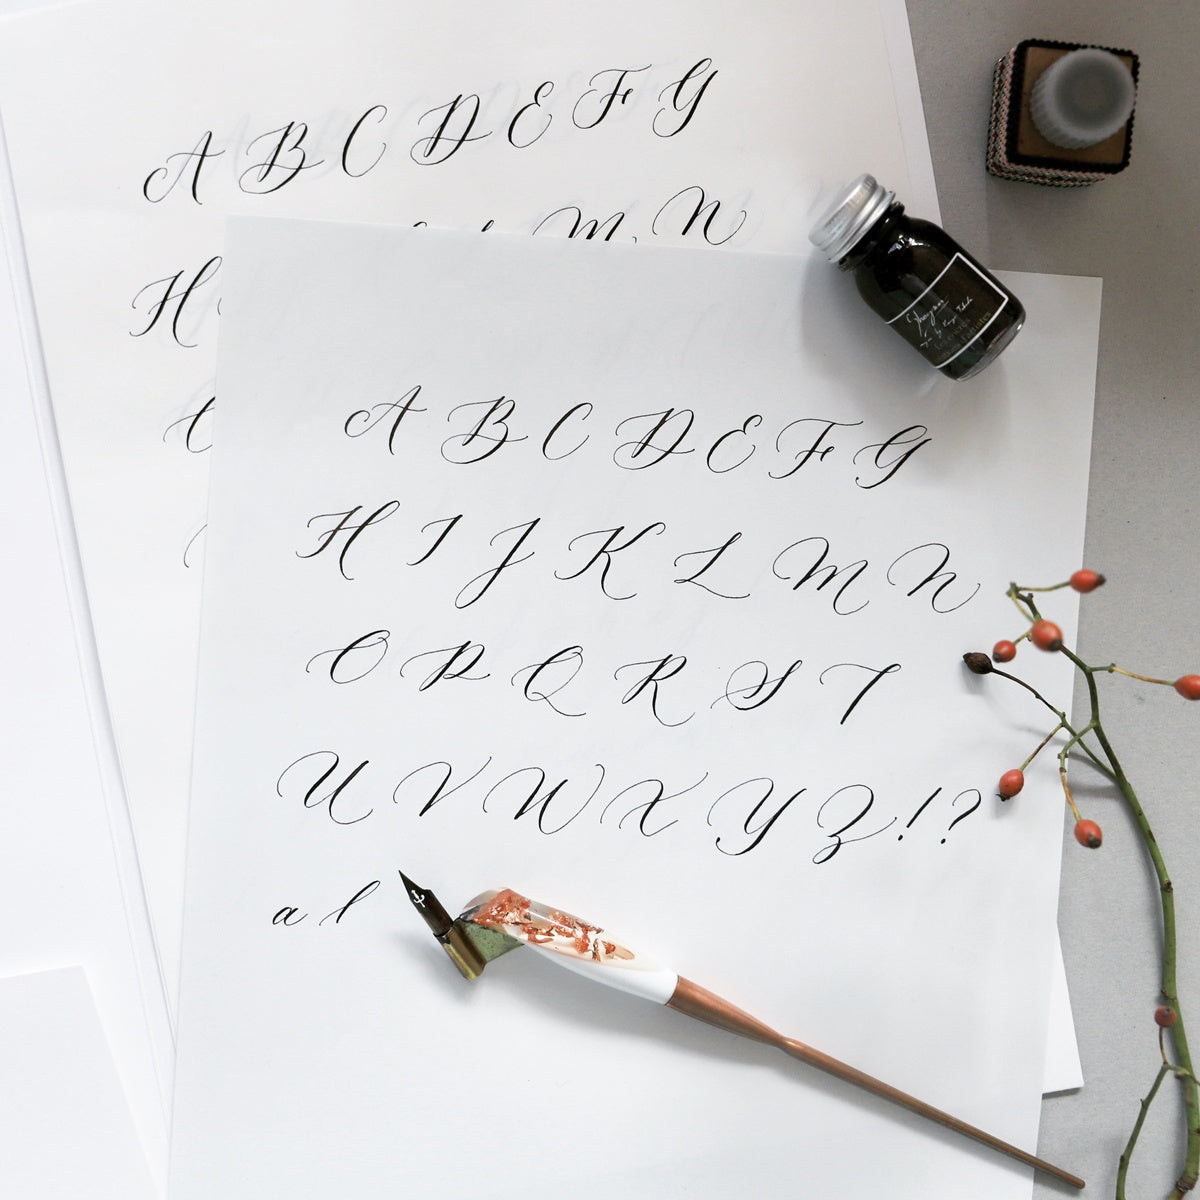 A B C D E F G
M N
H
A B C D E F G
H I J K L M N
O P Q R S T
U V W X Y Z ! ?
a l